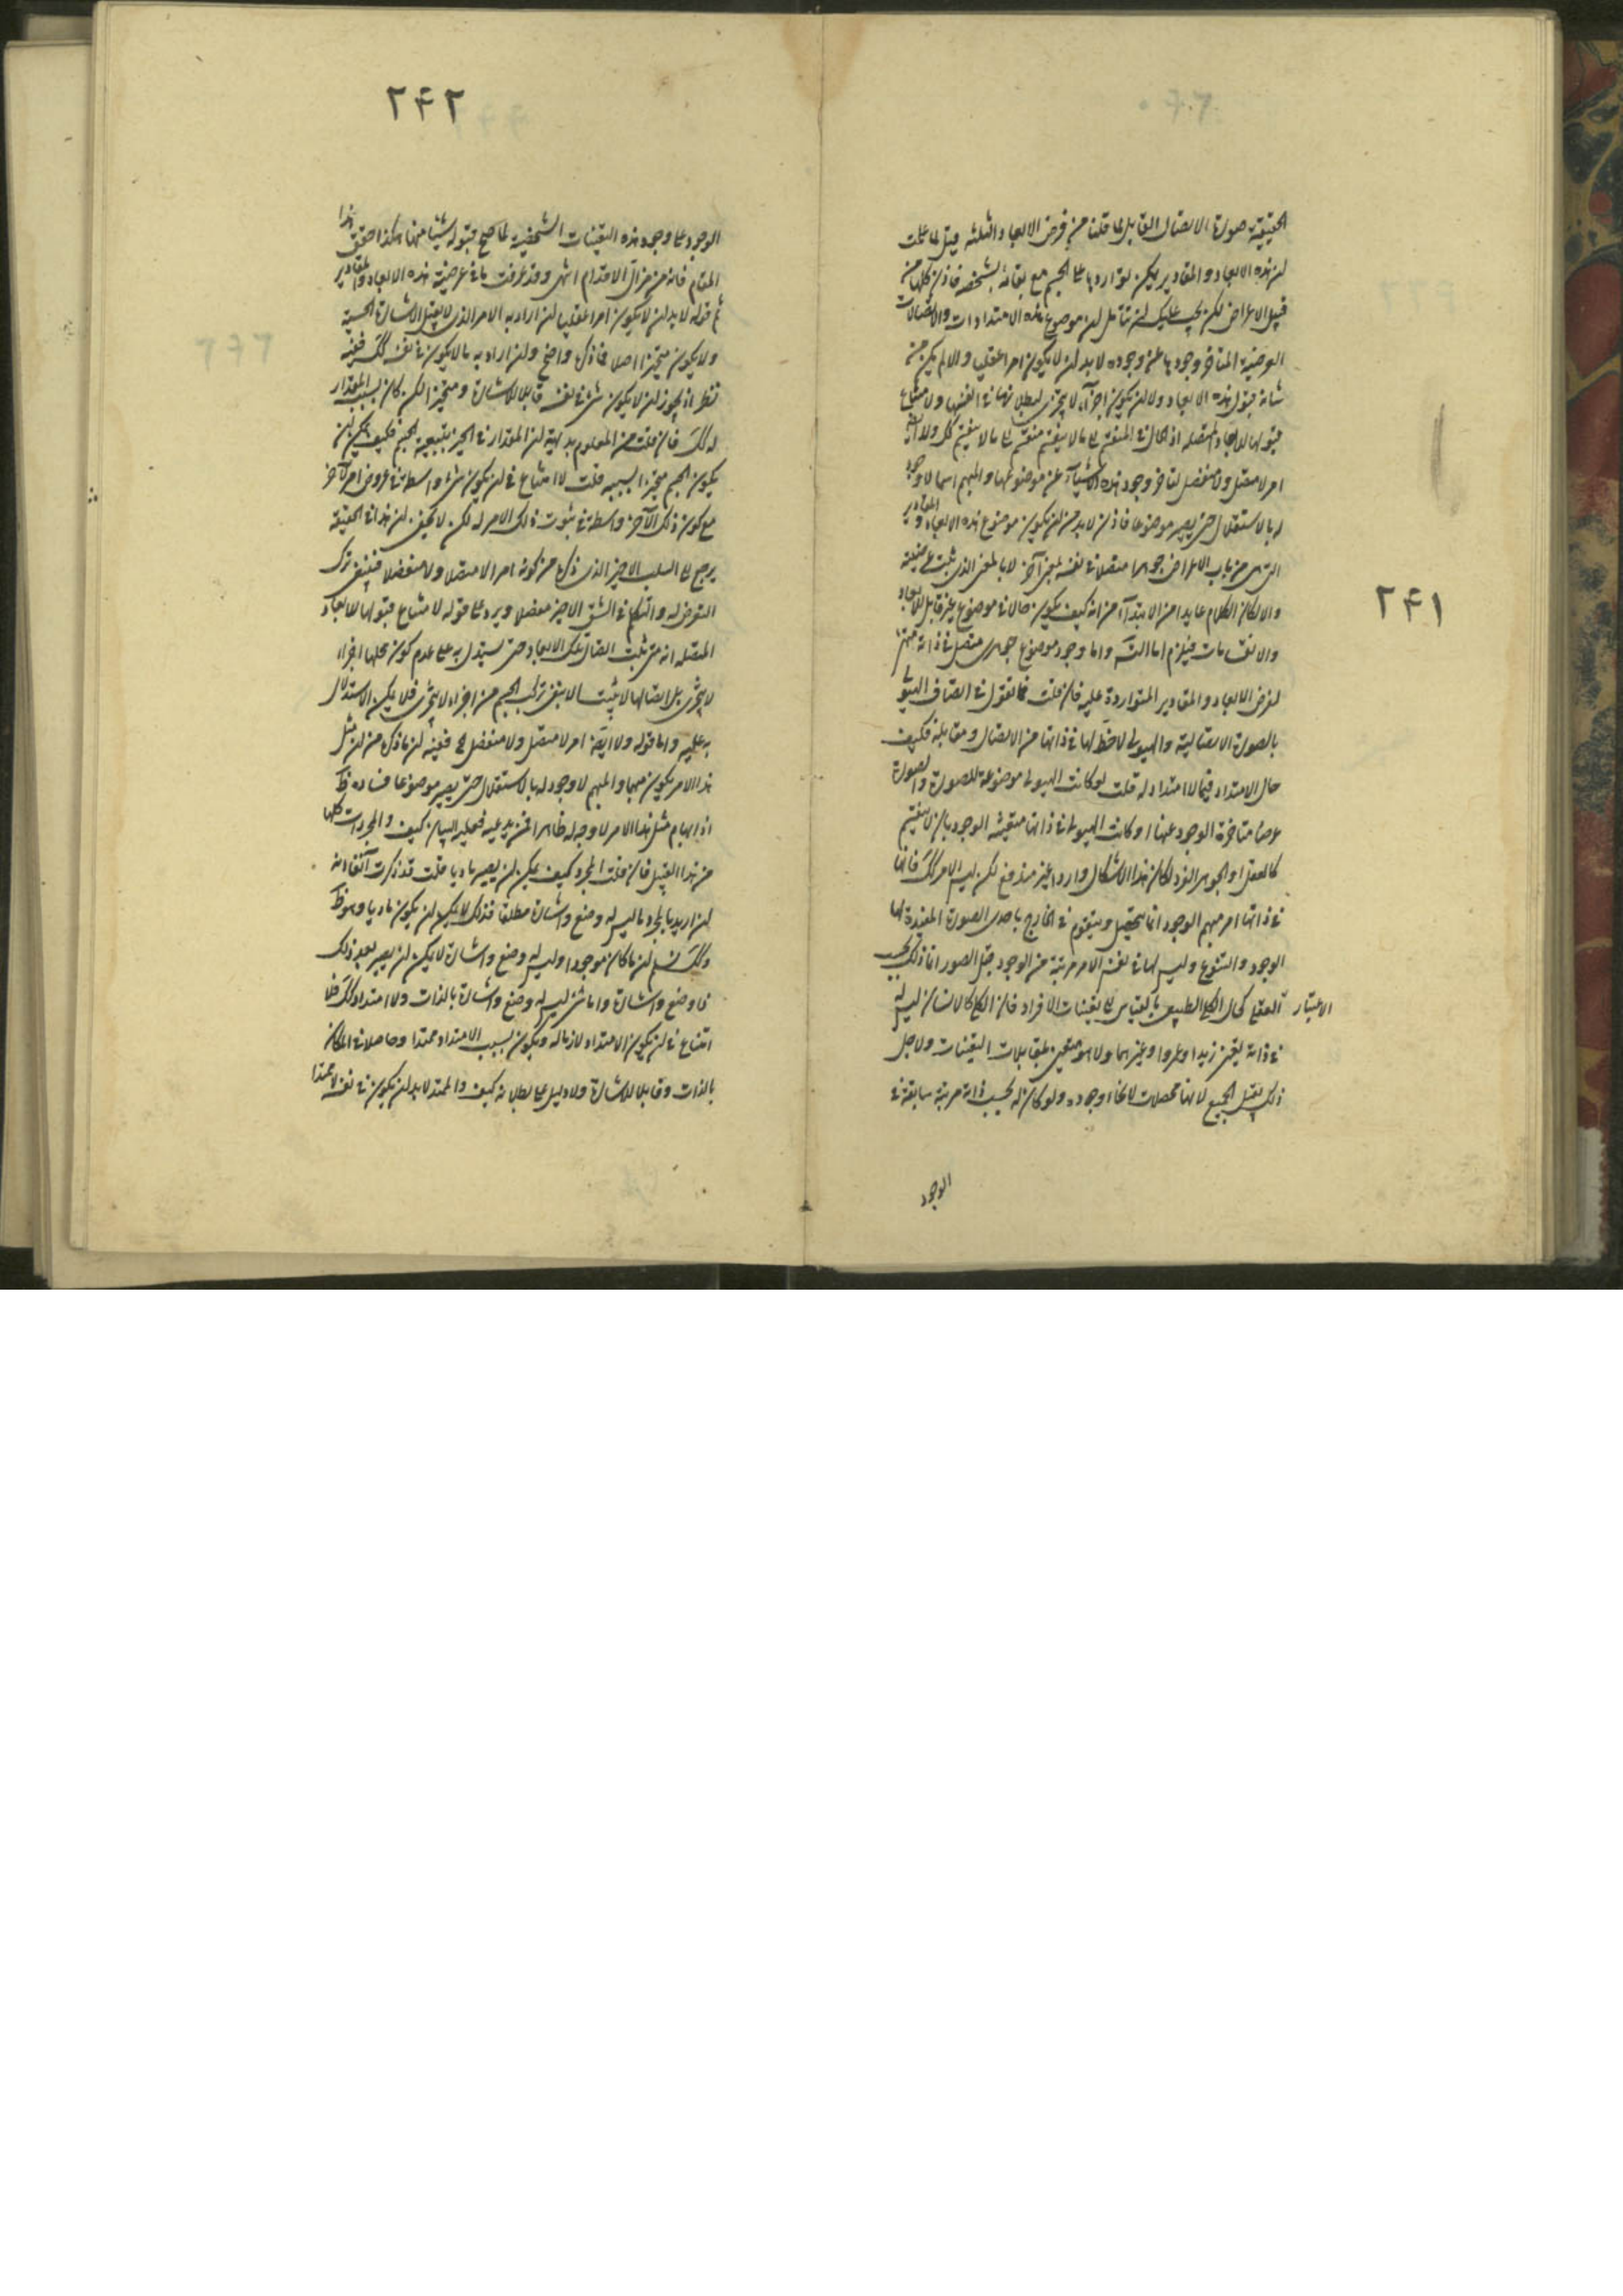 ٢۴١
الحقيقة صورة الاتصال القابل لما قلنا من فرض الابعاد الثلثة قيل لما علمت
ان هذه الابعاد والمقادير يمكن تواردها على الجسم مع بقائه بشخصه فاذن كلها من
قبيل الاعراض لكن يجب عليك ان تتأمل ان موضوع هذه الامتدادات والاتصالات
العرضية المتأخر وجودها عن وجوده لا بد ان لا يكون امرا عقليا والا لم يكن من
شانه قبول هذه الابعاد ولا ان يكون اجزاء لا يتجزى لبطلانها في انفسها ولامتناع
قبولها للابعاد المتصلة اذ الحال في المنقسم الى ما لا ينقسم منقسم الى ما لا ينقسم كل ولا ايضا
امر لا متصل ولا منفصل لتاخر وجود هذه الاشياء عن موضوعها والمبهم اسما لا وجود
له بالاستقلال حتى يصير موضوعا فاذن لا بد من ان يكون موضوع هذه الابعاد والمقادير
التي من باب الاعراض جوهرا متصلا في نفسه لمعنى آخر لا بالمعنى الذي ثبت عرضيته
والا لكان الكلام عايدا من الابتداء من انه كيف يكون حالا في موضوع غير قابل للابعاد
والانقسامات فيلزم اما التسلسل واما وجود موضوع جوهري متصل في ذاته
لفرض الابعاد والمقادير المتواردة عليه فان قلت فما تقول في اتصاف الهيولى
بالصورة الاتصالية والهيولى لا حظ لها في ذاتها من الاتصال ومقابله فكيف
حال الامتداد فيما لا امتداد له قلت لو كانت الهيولى موضوعة للصورة والصورة
عرضا متاخرة الوجود عنها او كانت الهيولى في ذاتها متعينة الوجود بان لا ينقسم
كالعقل او الجوهر الفرد لكان هذا الاشكال واردا غير مندفع لكن ليس الامر كذلك فانها
في ذاتها امر مبهم الوجود انما يتحصل ويتقوم في الخارج باحدى الصورة المفيدة لها
الوجود والتنوع وليس لها في نفس الامر مرتبة من الوجود قبل الصور انما ذلك بحسب
الاعتبار العقلي كحال الكلي الطبيعي بالقياس الى تعينات الافراد فان الكلي كالانسان ليس له
في ذاته تعين زيدا وعمروا وغيرهما ولا هو متعين بمقابلات التعينات ولاجل
ذلك يقبل الجميع لانها محصلات لانحاء وجوده ولو كان له بحسب ذاته مرتبة سابقة في
الوجود
٢۴٢
الوجود على وجود هذه التعينات الشخصية لما صح قبوله شيئا منها هكذا حقق هذا
المقام فانه من مزال الاقدام انتهى وقد عرفت ما في عرضية هذه الابعاد والمقادير
ثم قوله لا بد ان لا يكون امرا عقليا ان اراد به الامر الذي لا يقبل الاشارة الحسية
ولا يكون متحيزا اصلا فما ذكره واضح وان اراد به ما لا يكون في نفسه كذلك ففيه
نظر اذ يجوز ان لا يكون شئ في نفسه قابلا للاشارة ومتحيزا لكن كان بسبب المقدار
كذلك فان قلت من المعلوم بديهية ان المقدار في الحيز بتبعية الجسم فكيف يمكن ان
يكون الجسم متحيزا بسببه قلت لا امتناع في ان يكون شئ واسطة في عروض امر لآخر
مع كون ذلك الآخر واسطة في ثبوت ذلك الامر له لكن لا يخفى ان هذا في الحقيقة
يرجع الى السلب الاخير الذي ذكره من كونه امرا لا متصلا ولا منفصلا فينبغي ترك
التعرض له والتكلم في الشق الاخير مفصلا ويرد على قوله لامتناع قبولها للابعاد
المتصلة انه متى يثبت اتصال تلك الابعاد حتى يستدل به على عدم كون محلها اجزاء
لا يتجزى بل اتصالها لا يثبت الا بنفي تركب الجسم من اجزاء لا يتجزى فلا يمكن الاستدلال
به عليه واما قوله ولا ايضا امر لا متصل ولا منفصل الخ ففيه ان ما ذكره من ان مثل
هذا الامر يكون مبهما والمبهم لا وجود له بالاستقلال حتى يصير موضوعا فساده ظ
اذ ابهام مثل هذا الامر لا وجه له ظاهرا فمن يدعيه فعليه البيان كيف والمجردات كلها
من هذا القبيل فان قلت المجرد كيف يمكن ان يصير ماديا قلت قد ذكرت آنفا انه
ان اريد بالمجرد ما ليس له وضع واشارة مطلقا فذلك لا يمكن ان يكون ماديا وهو ظ
وكذلك نسلم ان ما كان موجودا وليس له وضع واشارة لا يمكن ان يصير بعد ذلك
ذا وضع واشارة واما شئ ليس له وضع واشارة بالذات ولا امتداد كذلك فلا
امتناع في ان يكون الامتداد لازما له ويكون بسبب الامتداد ممتدا وحاصلا في المكان
بالذات وقابلا للاشارة ولا دليل على بطلانه كيف والممتد لا بد ان يكون في نفسه لا ممتدا